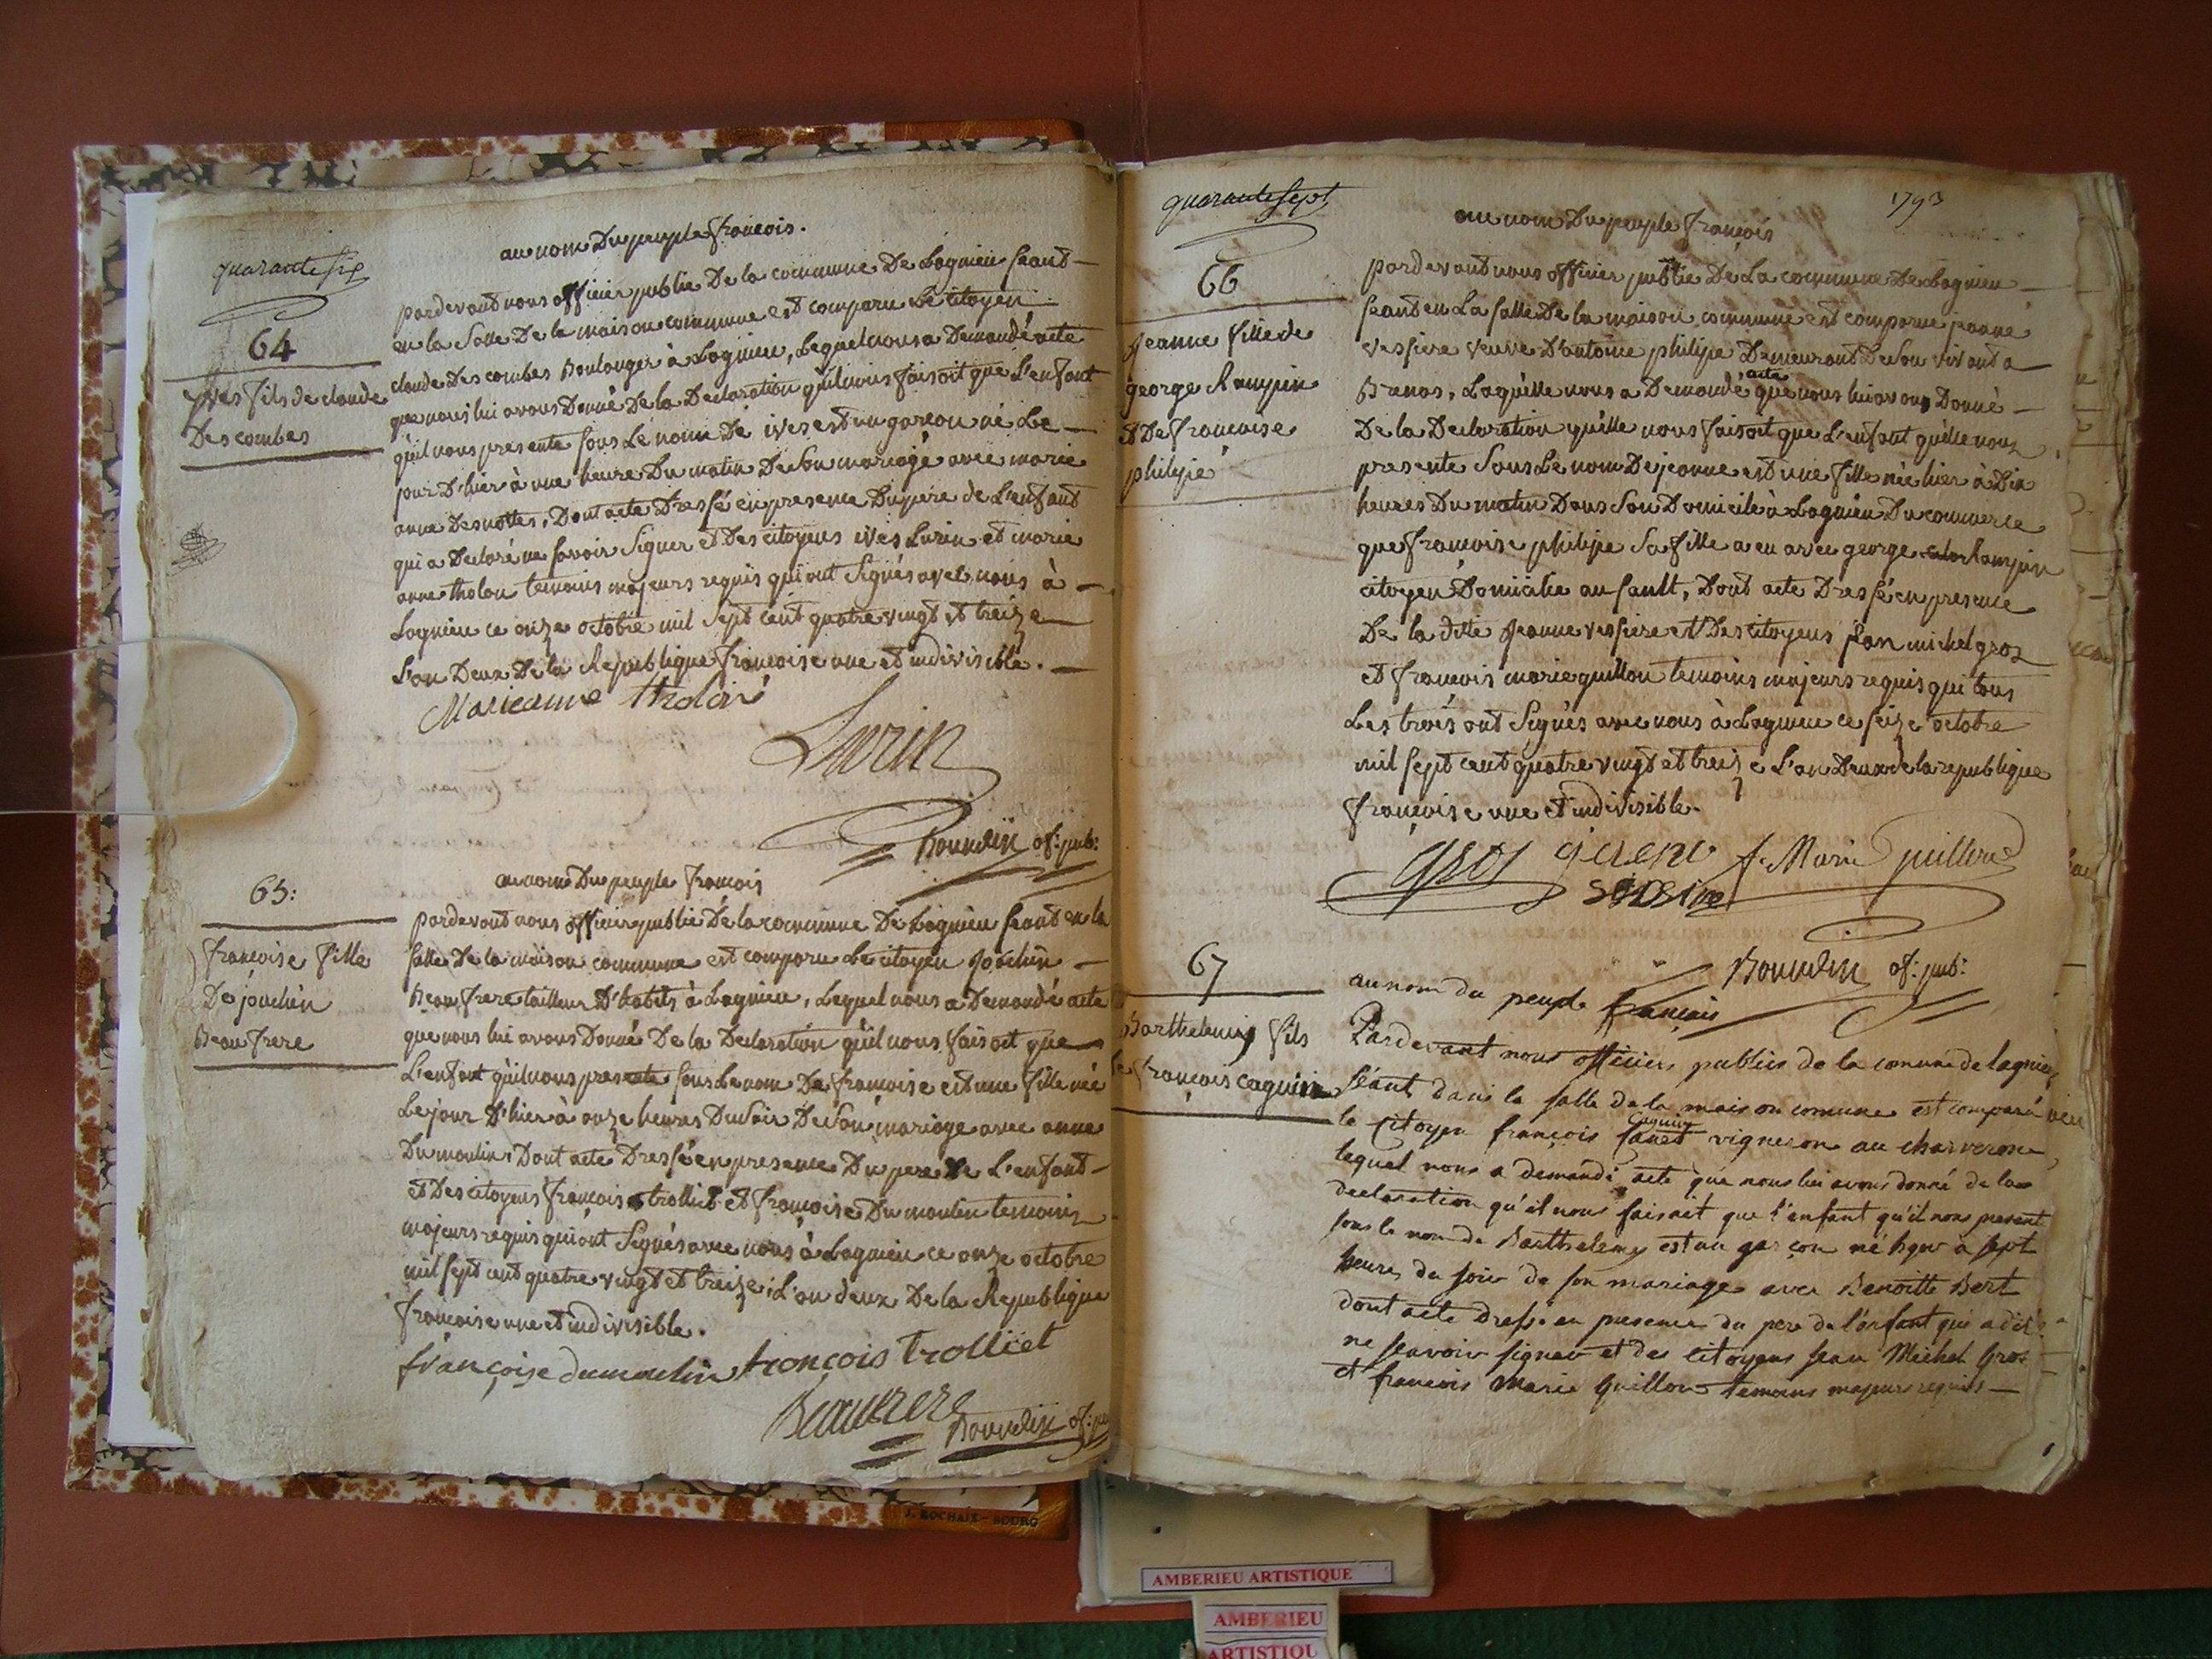 quarante six
64
yves fils de claude
Descombes
au nom Du peuple francois.
pardevant nous officier public De la commune De Lagnieu seant
en la Salle De la maison commune est comparu Le citoyen
claude Descombes Boulanger à Lagnieu, Lequel nous a Demandé acte
que nous lui avons Donné De la Declaration qu'il nous faisoit que L'enfant
qu'il nous presente sous Le nom De ives est un garcon né Le
jour D'hier à une heure Du matin De Son mariage avec marie
anne Desnottes, Dont acte Dressé en presence Du pere de L'enfant
qui a Declaré ne savoir Signer et Des citoyens ives Lurin et marie
anne tholon temoins majeurs requis qui ont Signés avec nous à
Lagnieu ce onze octobre mil Sept cent quatre vingt et treize
L'an Deux De la Republique francoise une et indivisible.
Marieanne tholon
Lurin
of: pub:
65:
francoise fille
De joachin
Beaufrere
au nom Du peuple francois
pardevant nous officier public De la commune De Lagnieu seant en la
salle De la maison commune est comparu Le citoyen joachin
Beaufrere tailleur D'habits à Lagnieu, Lequel nous a Demandé acte
que nous lui avons Donné De la Declaration qu'il nous faisoit que
L'enfant qu'il nous presente sous Le nom De francoise est une fille née
Le jour D'hier à onze heures Du Soir De Son mariage avec anne
Dumoulin Dont acte Dressé en presence Du pere De L'enfant
et Des citoyens françois trolliet et francoise Dumoulin temoins
majeurs requis qui ont Signés avec nous à Lagnieu ce onze octobre
mil sept cent quatre vingt et treize L'an deux De la Republique
francoise une et indivisible.
françoise dumoulin françois trolliet
Beaufrere
of: pu
quarante sept
1793
66
Jeanne fille de
george Rampin
et De francoise
philipe
au nom Du peuple françois
pardevant nous officier public De La commune De Lagnieu
seant en La salle De la maison commune est comparue jeanne
vessiere veuve D'antoine philipe Demeurant De Son vivant a
Brenas, Laquelle nous a Demandé acte que nous lui avons Donné
De la Declaration qu'elle nous faisoit que L'enfant qu'elle nous
presente Sous Le nom De jeanne est une fille née hier à Dix
heures Du matin Dans Son Domicile à Lagnieu Du commerce
que francoise philipe Sa fille a eu avec george Rampin
citoyen Domicilié au sault, Dont acte Dressé en presence
De la dite Jeanne vessiere et Des citoyens jean michel gros
et francois marie guillon temoins majeurs requis qui tous
Les trois ont Signés avec nous à Lagnieu ce seize octobre
mil sept cent quatre vingt et treize L'an Deux de la republique
françoise une et indivisible.
gros
f. Marie guillon
of: pub:
67
Barthelemy fils
de françois caguin
au nom du peuple français
Pardevant nous officier public de la comune de lagnieu
séant dans la salle de la maison comune est comparu
le citoyen françois Caguin vigneron au charveron
lequel nous a demandé acte que nous lui avons donné de la
declaration qu'il nous faisait que l'enfant qu'il nous present
sous le nom de Barthelemy est un garçon né hyer a sept
heures du soir de son mariage avec Benoitte Bert
dont acte dressé en presence du pere de l'enfant qui a dit
ne scavoir signer et des citoyens jean Michel Gros
et francois Marie Guillon temoins majeurs requis
J. ROCHAIX - BOURG
AMBERIEU ARTISTIQUE
AMBERIEU
ARTISTIQU